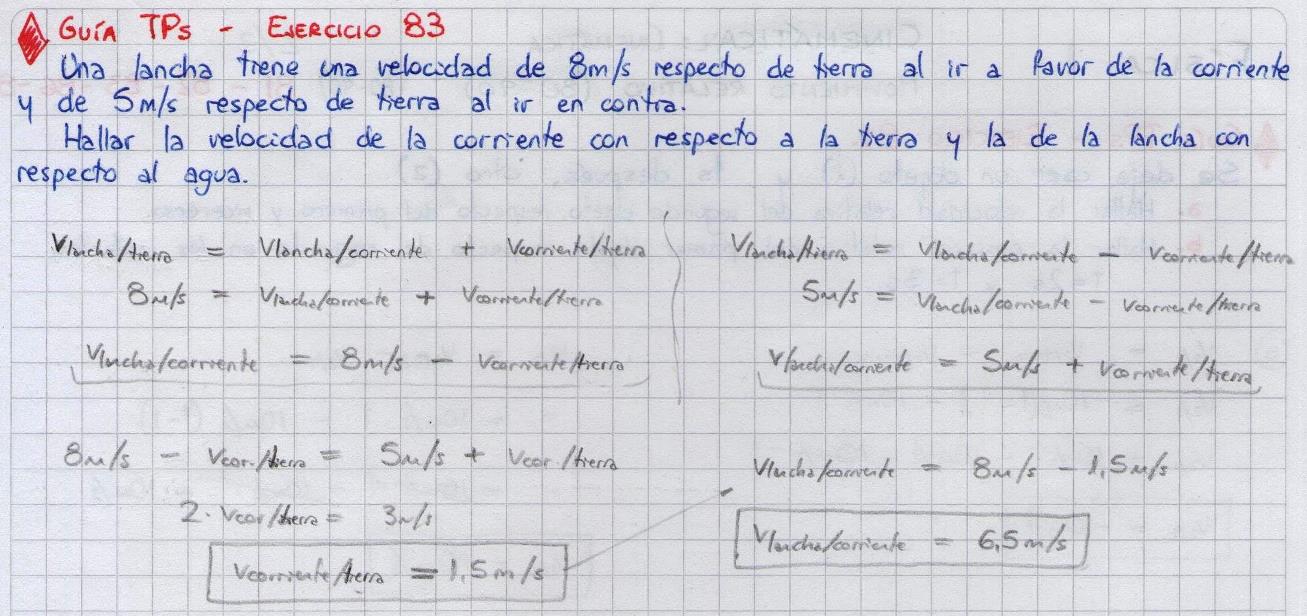 GUÍA TPs - EJERCICIO 83
Una lancha tiene una velocidad de 8m/s respecto de tierra al ir a favor de la corriente
y de 5m/s respecto de tierra al ir en contra.
Hallar la velocidad de la corriente con respecto a la tierra y la de la lancha con
respecto al agua.
Vlancha/tierra = Vlancha/corriente + Vcorriente/tierra
8m/s = Vlancha/corriente + Vcorriente/tierra
Vlancha/corriente = 8m/s - Vcorriente/tierra
Vlancha/tierra = Vlancha/corriente - Vcorriente/tierra
5m/s = Vlancha/corriente - Vcorriente/tierra
Vlancha/corriente = 5m/s + Vcorriente/tierra
8m/s - Vcor./tierra = 5m/s + Vcor./tierra
2·Vcor/tierra = 3m/s
Vcorriente/tierra = 1,5m/s
Vlancha/corriente = 8m/s - 1,5m/s
Vlancha/corriente = 6,5m/s